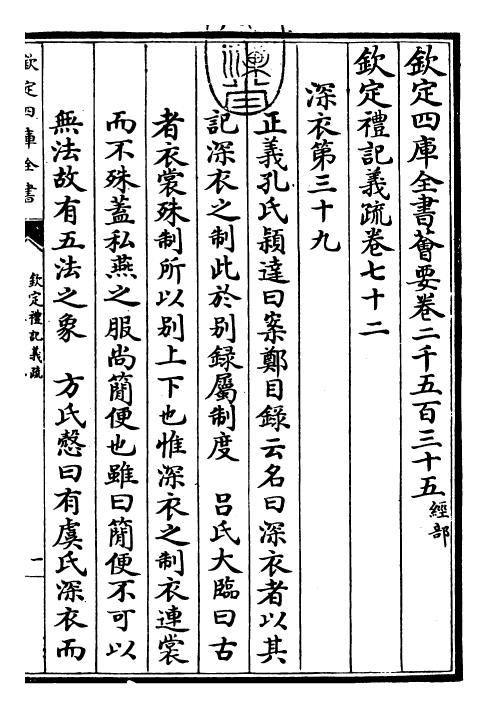 欽定四庫全書薈要卷二千五百三十五經部
欽定禮記義疏卷七十二
深衣第三十九
正義孔氏穎達曰案鄭目録云名曰深衣者以其
記深衣之制此於别録屬制度　吕氏大臨曰古
者衣裳殊制所以别上下也惟深衣之制衣連裳
而不殊蓋私燕之服尚簡便也雖曰簡便不可以
無法故有五法之象　方氏慤曰有虞氏深衣而
欽定四庫全書
欽定禮記義疏
一